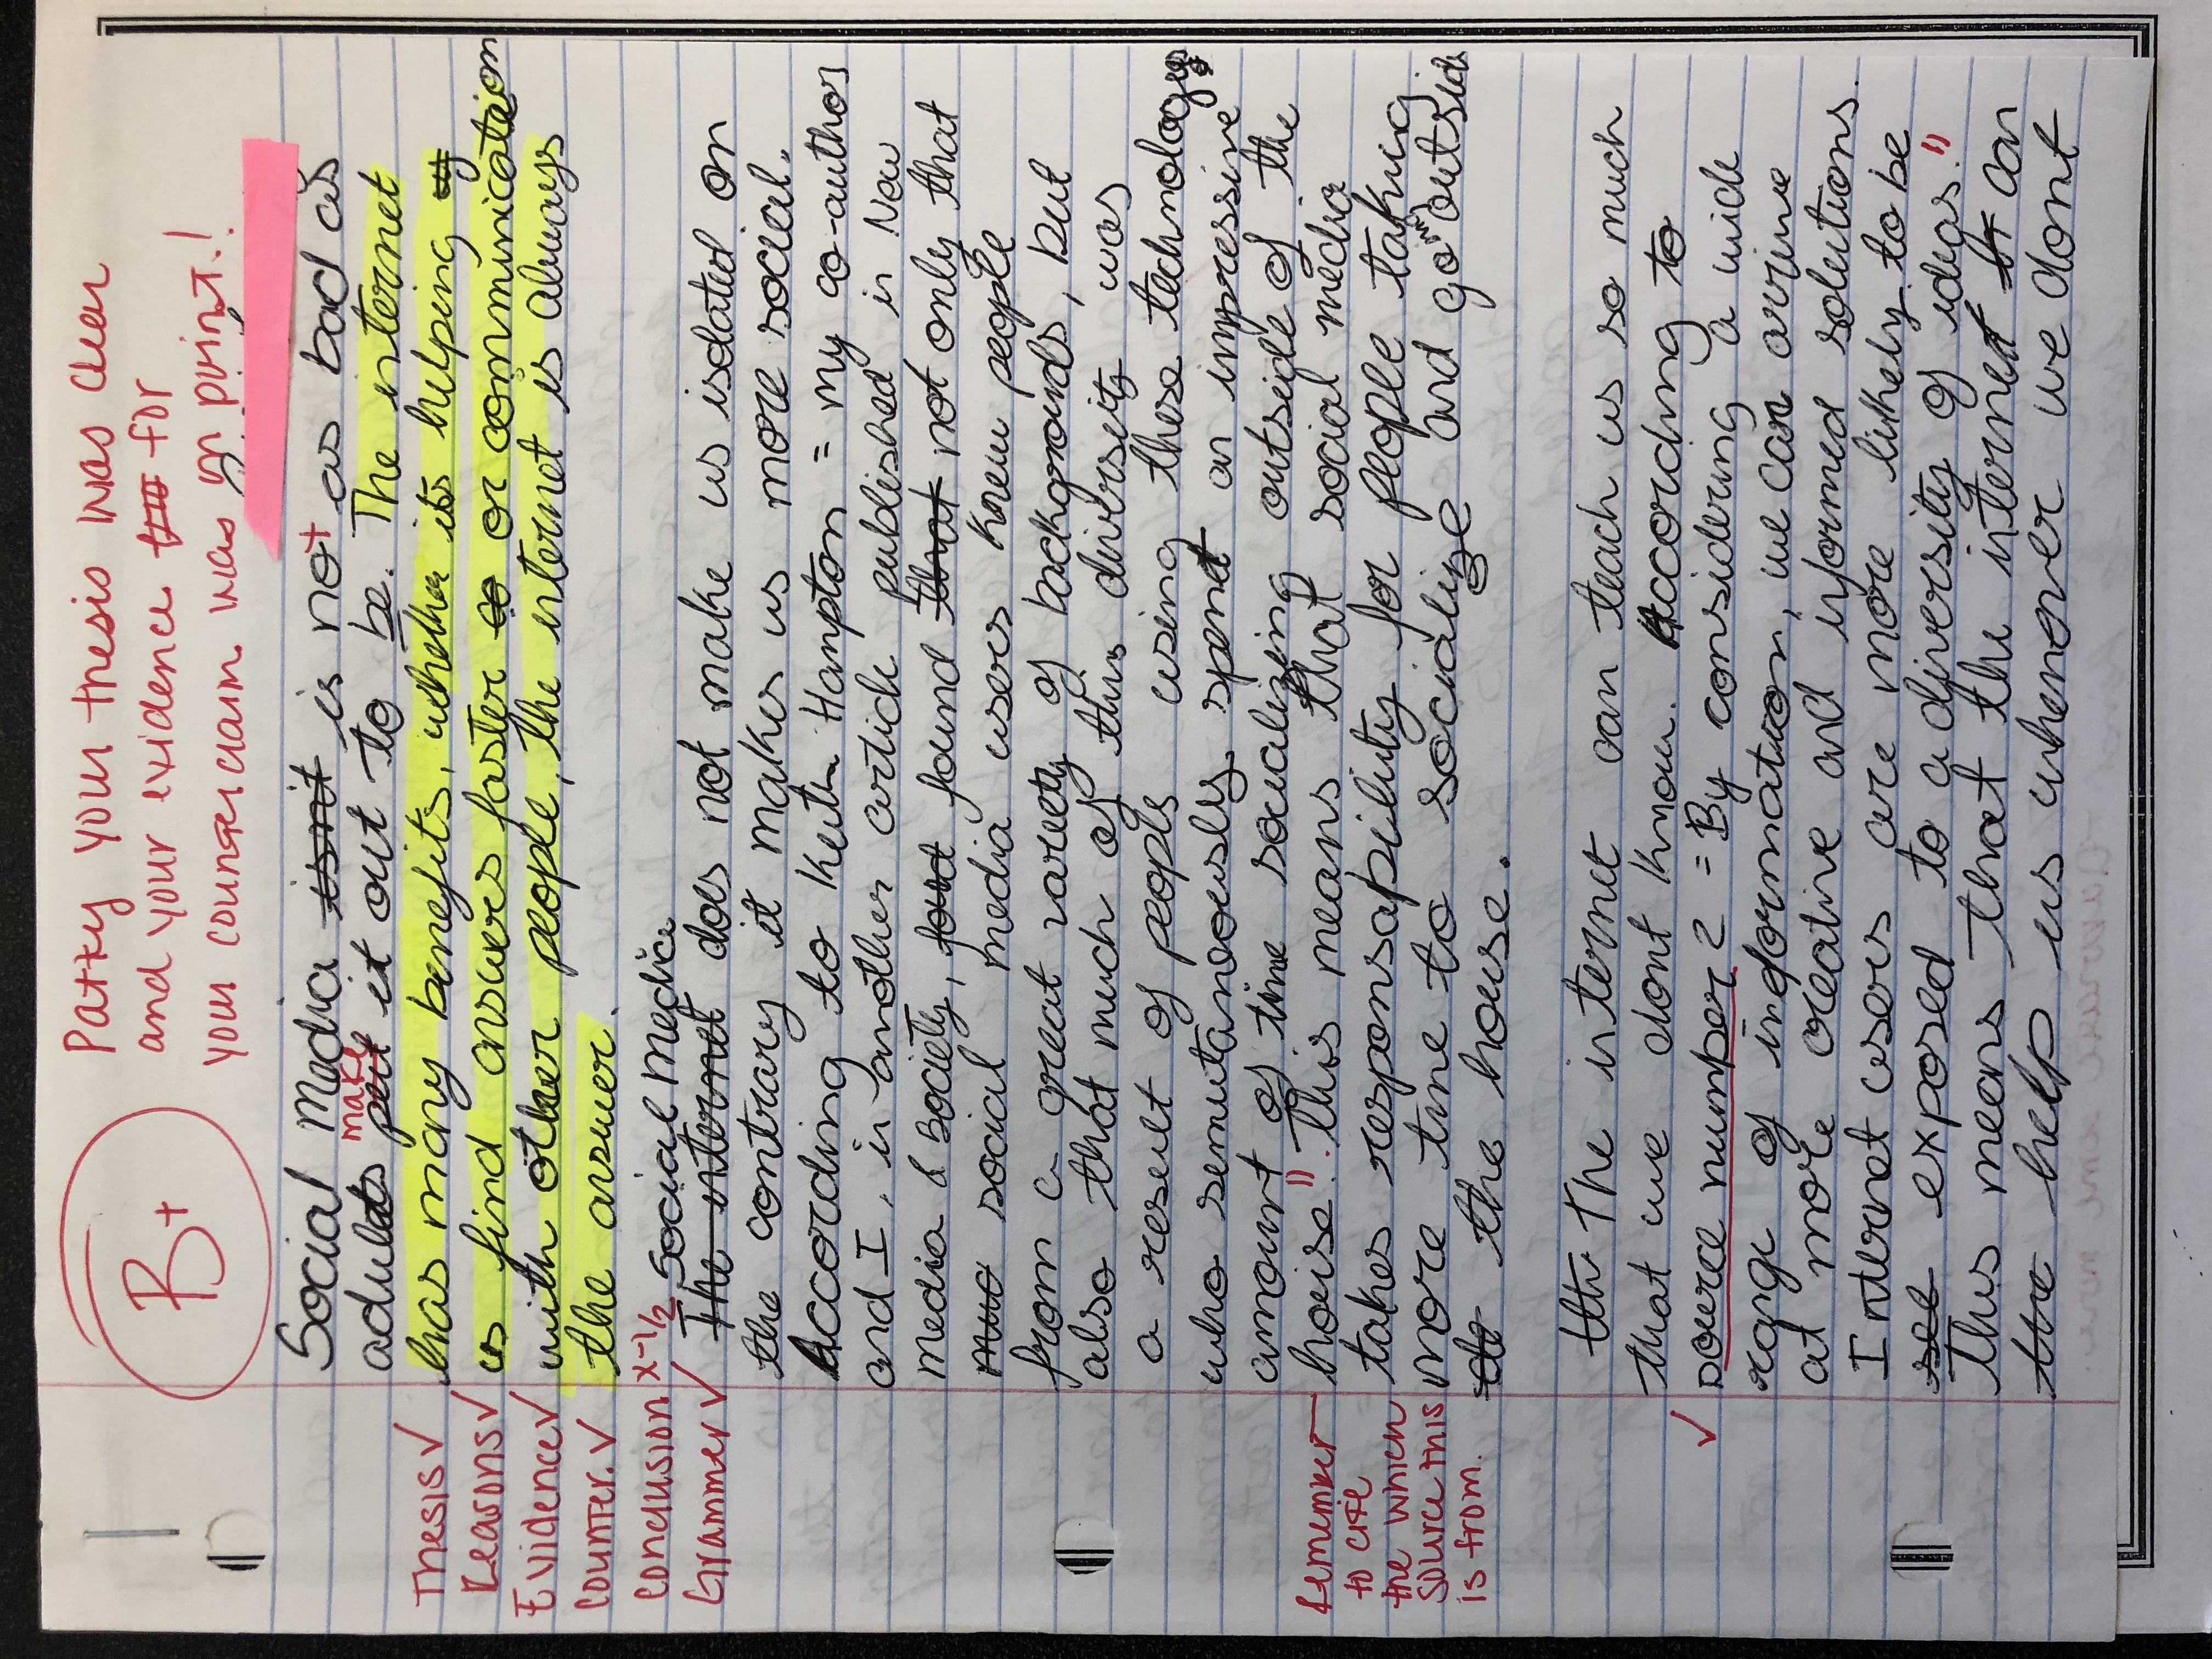 Patty your thesis was clear
and your evidence for
your counterclaim was on point!
B+
Social Media isnt is not as bad as
adults put make it out to be. The internet
has many benefits, whether its helping
us find answers faster or communication
with other people, the internet is always
the answer.
Thesis ✓
Reasons ✓
Evidence ✓
Counter. ✓
Conclusion x-1/2
Grammer ✓
Social media
The internet does not make us isolated on
the contrary it makes us more social.
According to Keith Hampton = my co-author
and I, in another article published in New
media & Society, found that not only that
social media users knew people
from a great variety of backgrounds, but
also that much of this diversity was
a result of people using these technologys
who semutaneously spend an impressive
amount of time socializing outside of the
house". This means that social media
takes responsapility for people taking
more time to socialize and go outside
the house.
Remember
to cite
the which
source this
is from.
The internet can teach us so much
that we dont know. According to
✓
source number 2 = By considering a wide
range of information, we can arrive
at more creative and informed solutions.
Internet users are more likely to be
exposed to a diversity of ideas."
This means that the internet can
help us whenever we dont